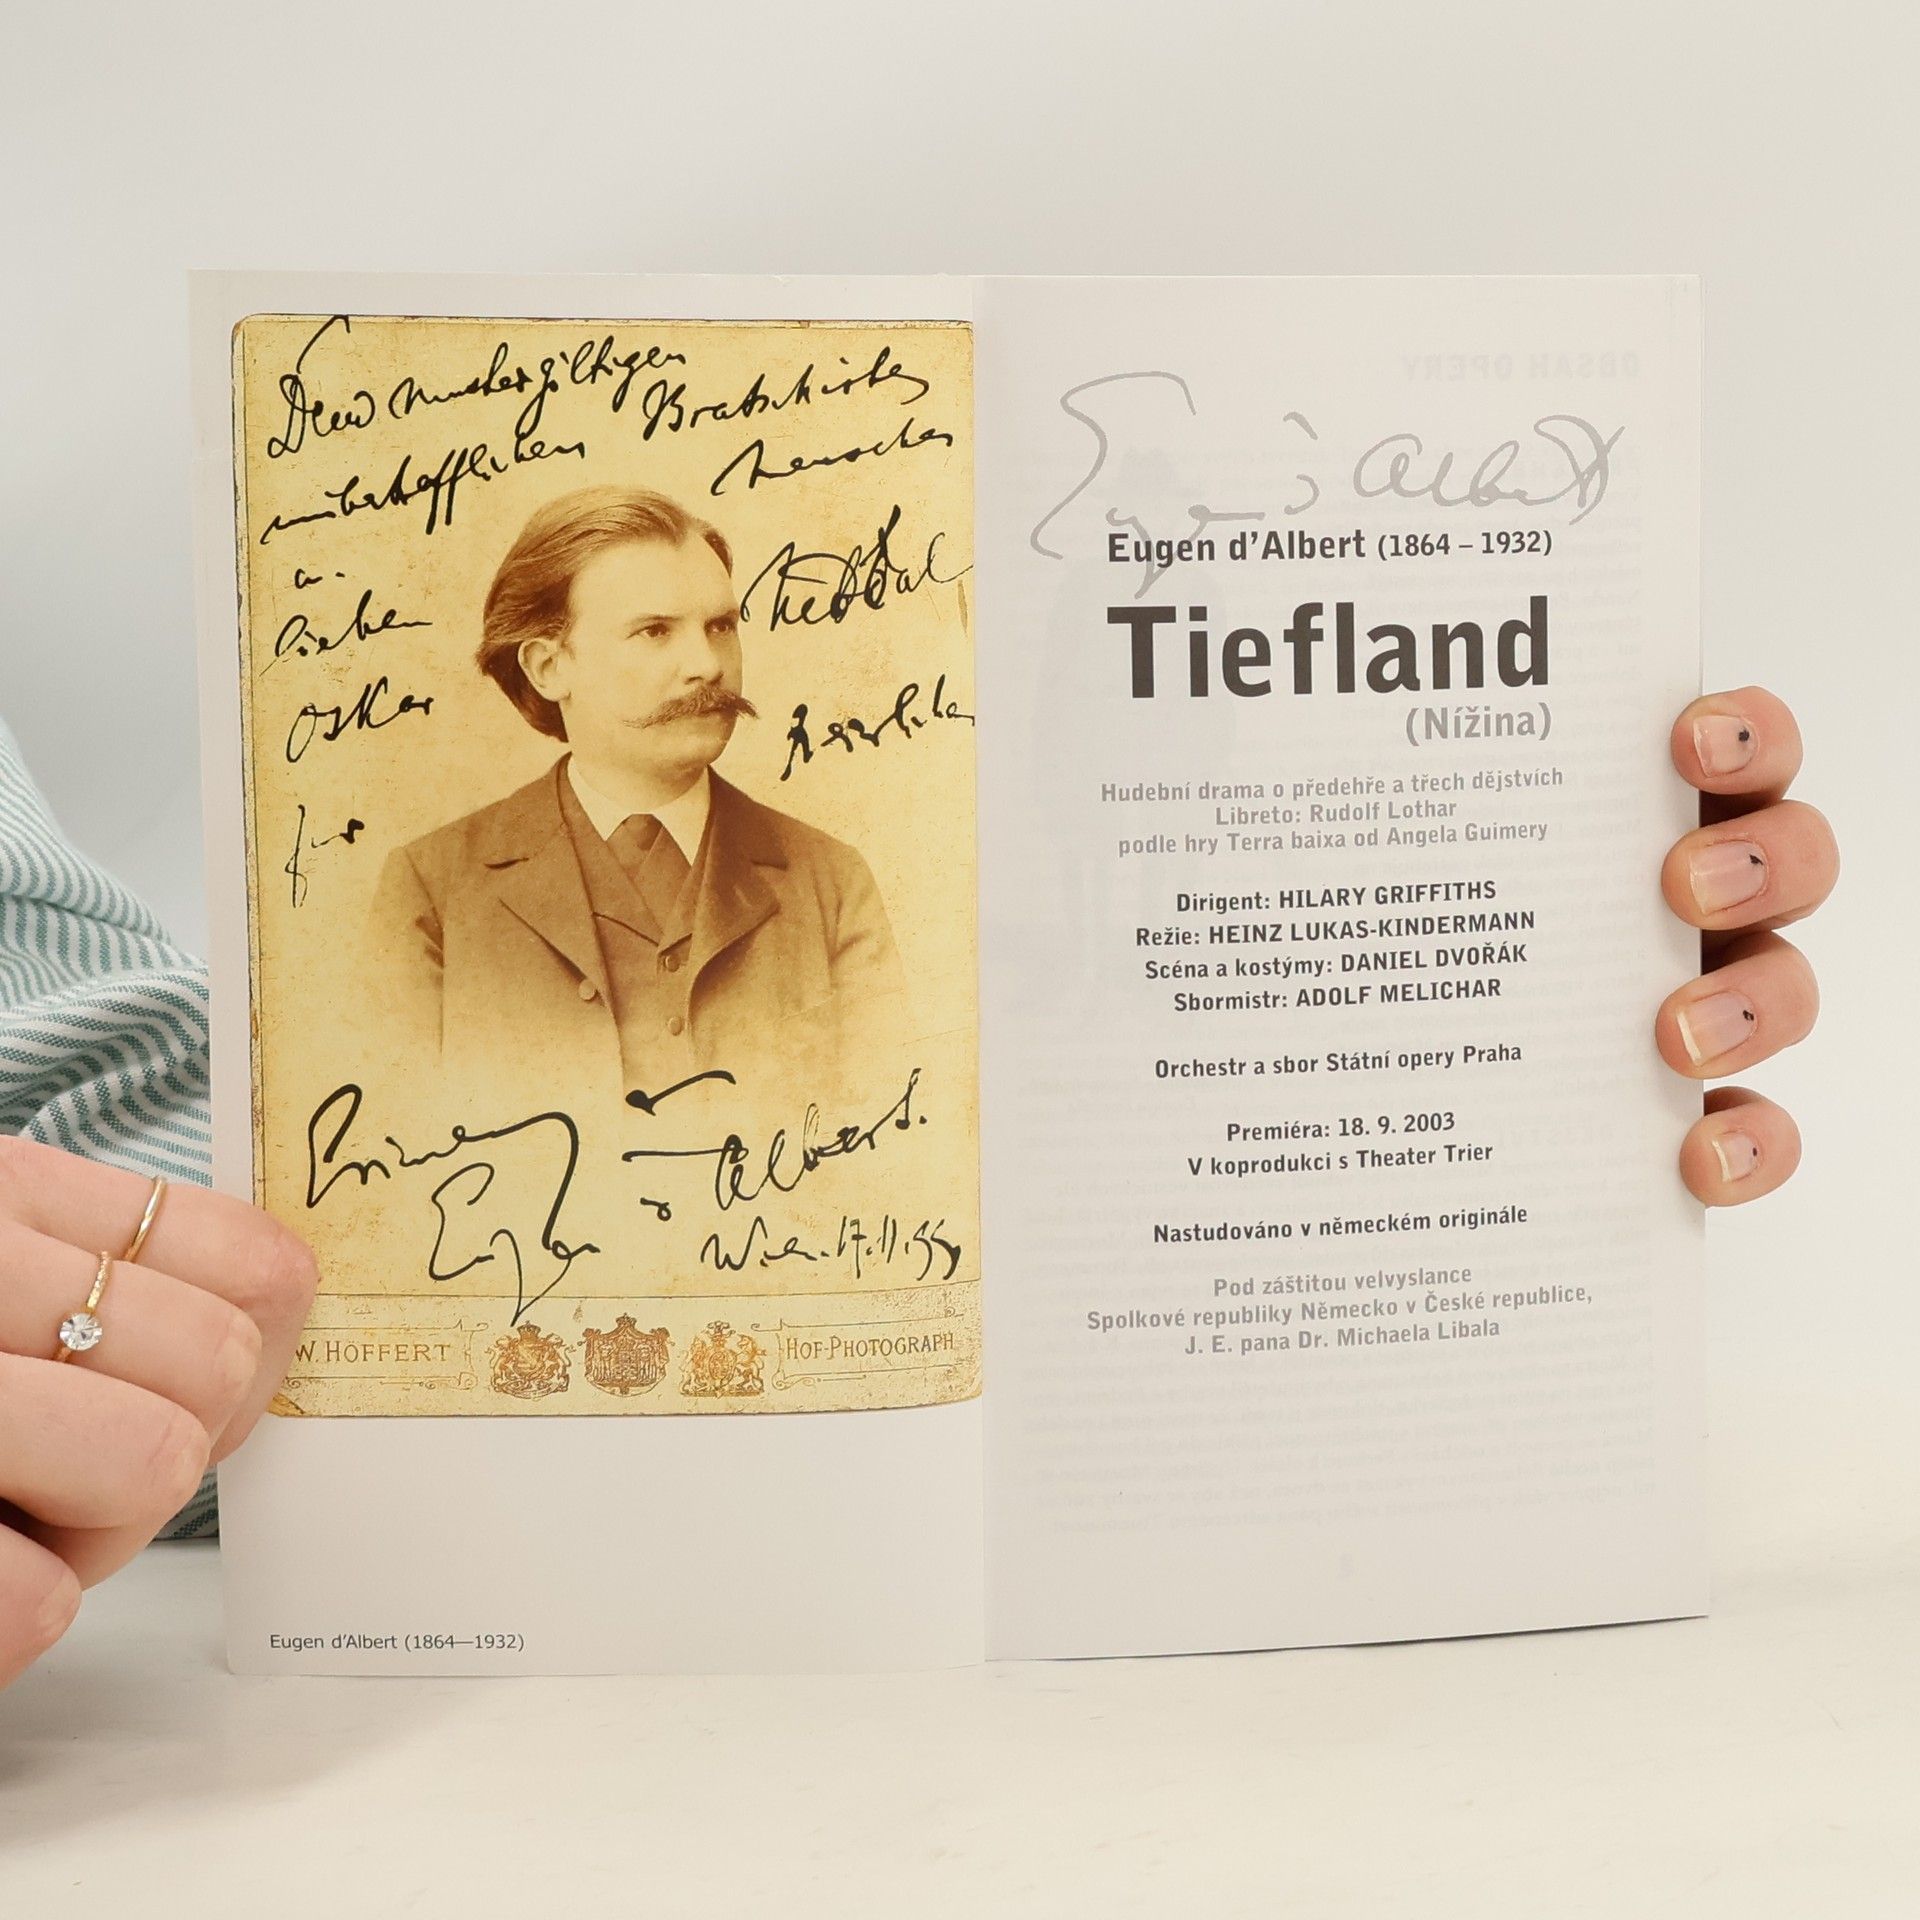 Dem mustergiltigen
Bratschisten
unübertrefflichen
Menschen
u.
lieben
Oskar
Nedbal
herzlichen
zur
Erinnerung
Eugen d'Albert.
Wien. 17.11.99
W. HÖFFERT
HOF-PHOTOGRAPH
Eugen d'Albert (1864—1932)
Eugen d'Albert
Eugen d'Albert (1864 – 1932)
Tiefland
(Nížina)
Hudební drama o předehře a třech dějstvích
Libreto: Rudolf Lothar
podle hry Terra baixa od Angela Guimery
Dirigent: HILARY GRIFFITHS
Režie: HEINZ LUKAS-KINDERMANN
Scéna a kostýmy: DANIEL DVOŘÁK
Sbormistr: ADOLF MELICHAR
Orchestr a sbor Státní opery Praha
Premiéra: 18. 9. 2003
V koprodukci s Theater Trier
Nastudováno v německém originále
Pod záštitou velvyslance
Spolkové republiky Německo v České republice,
J. E. pana Dr. Michaela Libala